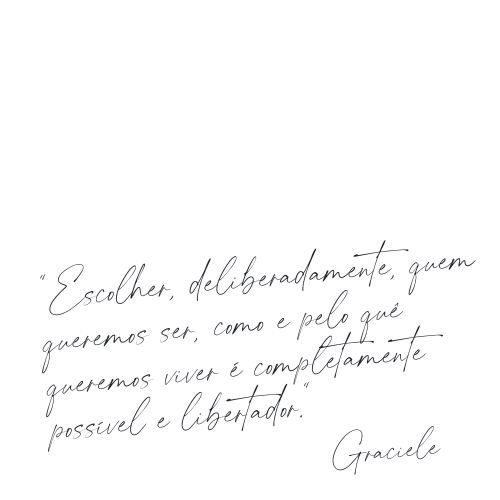 "Escolher, deliberadamente, quem
queremos ser, como e pelo quê
queremos viver é completamente
possível e libertador."
Graciele